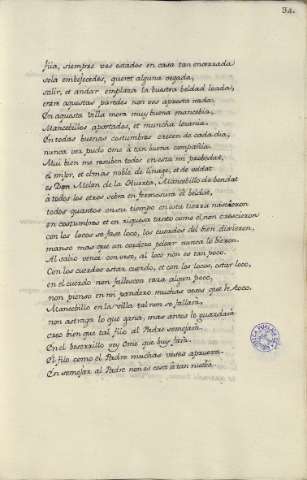 34.
fija, siempre vos estades en casa tan encerrada
sola envejecedes, quered alguna vegada,
salir, et andar emplaza la vuestra beldad loada,
entre aquestas paredes non vos aprestara nada,
En aquesta villa mora muy buena mancebia,
Mancebillos apostados, et muncha lozania.
En todas buenas costumbres crecen de cada dia,
nunca ver pudo ome á tan buena compañia.
Mui bien me resciben todos en esta mi pobredat,
el mejor, et el mas noble de linage, et de verdat
es Don Melon de la Huerta, Mancebillo de beldat
á todos los otros sobra en fermosura et beldat,
todos quantos en su tiempo en esta tierra nascieron
en costumbres et en riqueza tanto como él non crescieron
con los locos se face loco, los cuerdos del bien dixieron,
manso mas que un cordero pelear nunca lo vieron.
Al sabio vencer con seso, al loco non es tan poco
Con los cuerdos estar cuerdo, et con los locos, estar loco,
en el cuerdo non fallescen para algun poco,
non pienso en mi pandero muchas veces que le toco.
Mancebillo en la villa tal non se fallará,
non astraga lo que gana, mas antes lo guardará
creo bien que tal fijo al Padre semejará.
En el becerrillo vey Ome que buey fará.
El fijo como el Padre muchas veces aprueva.
En semejar al Padre non es cosa á tan nueva.